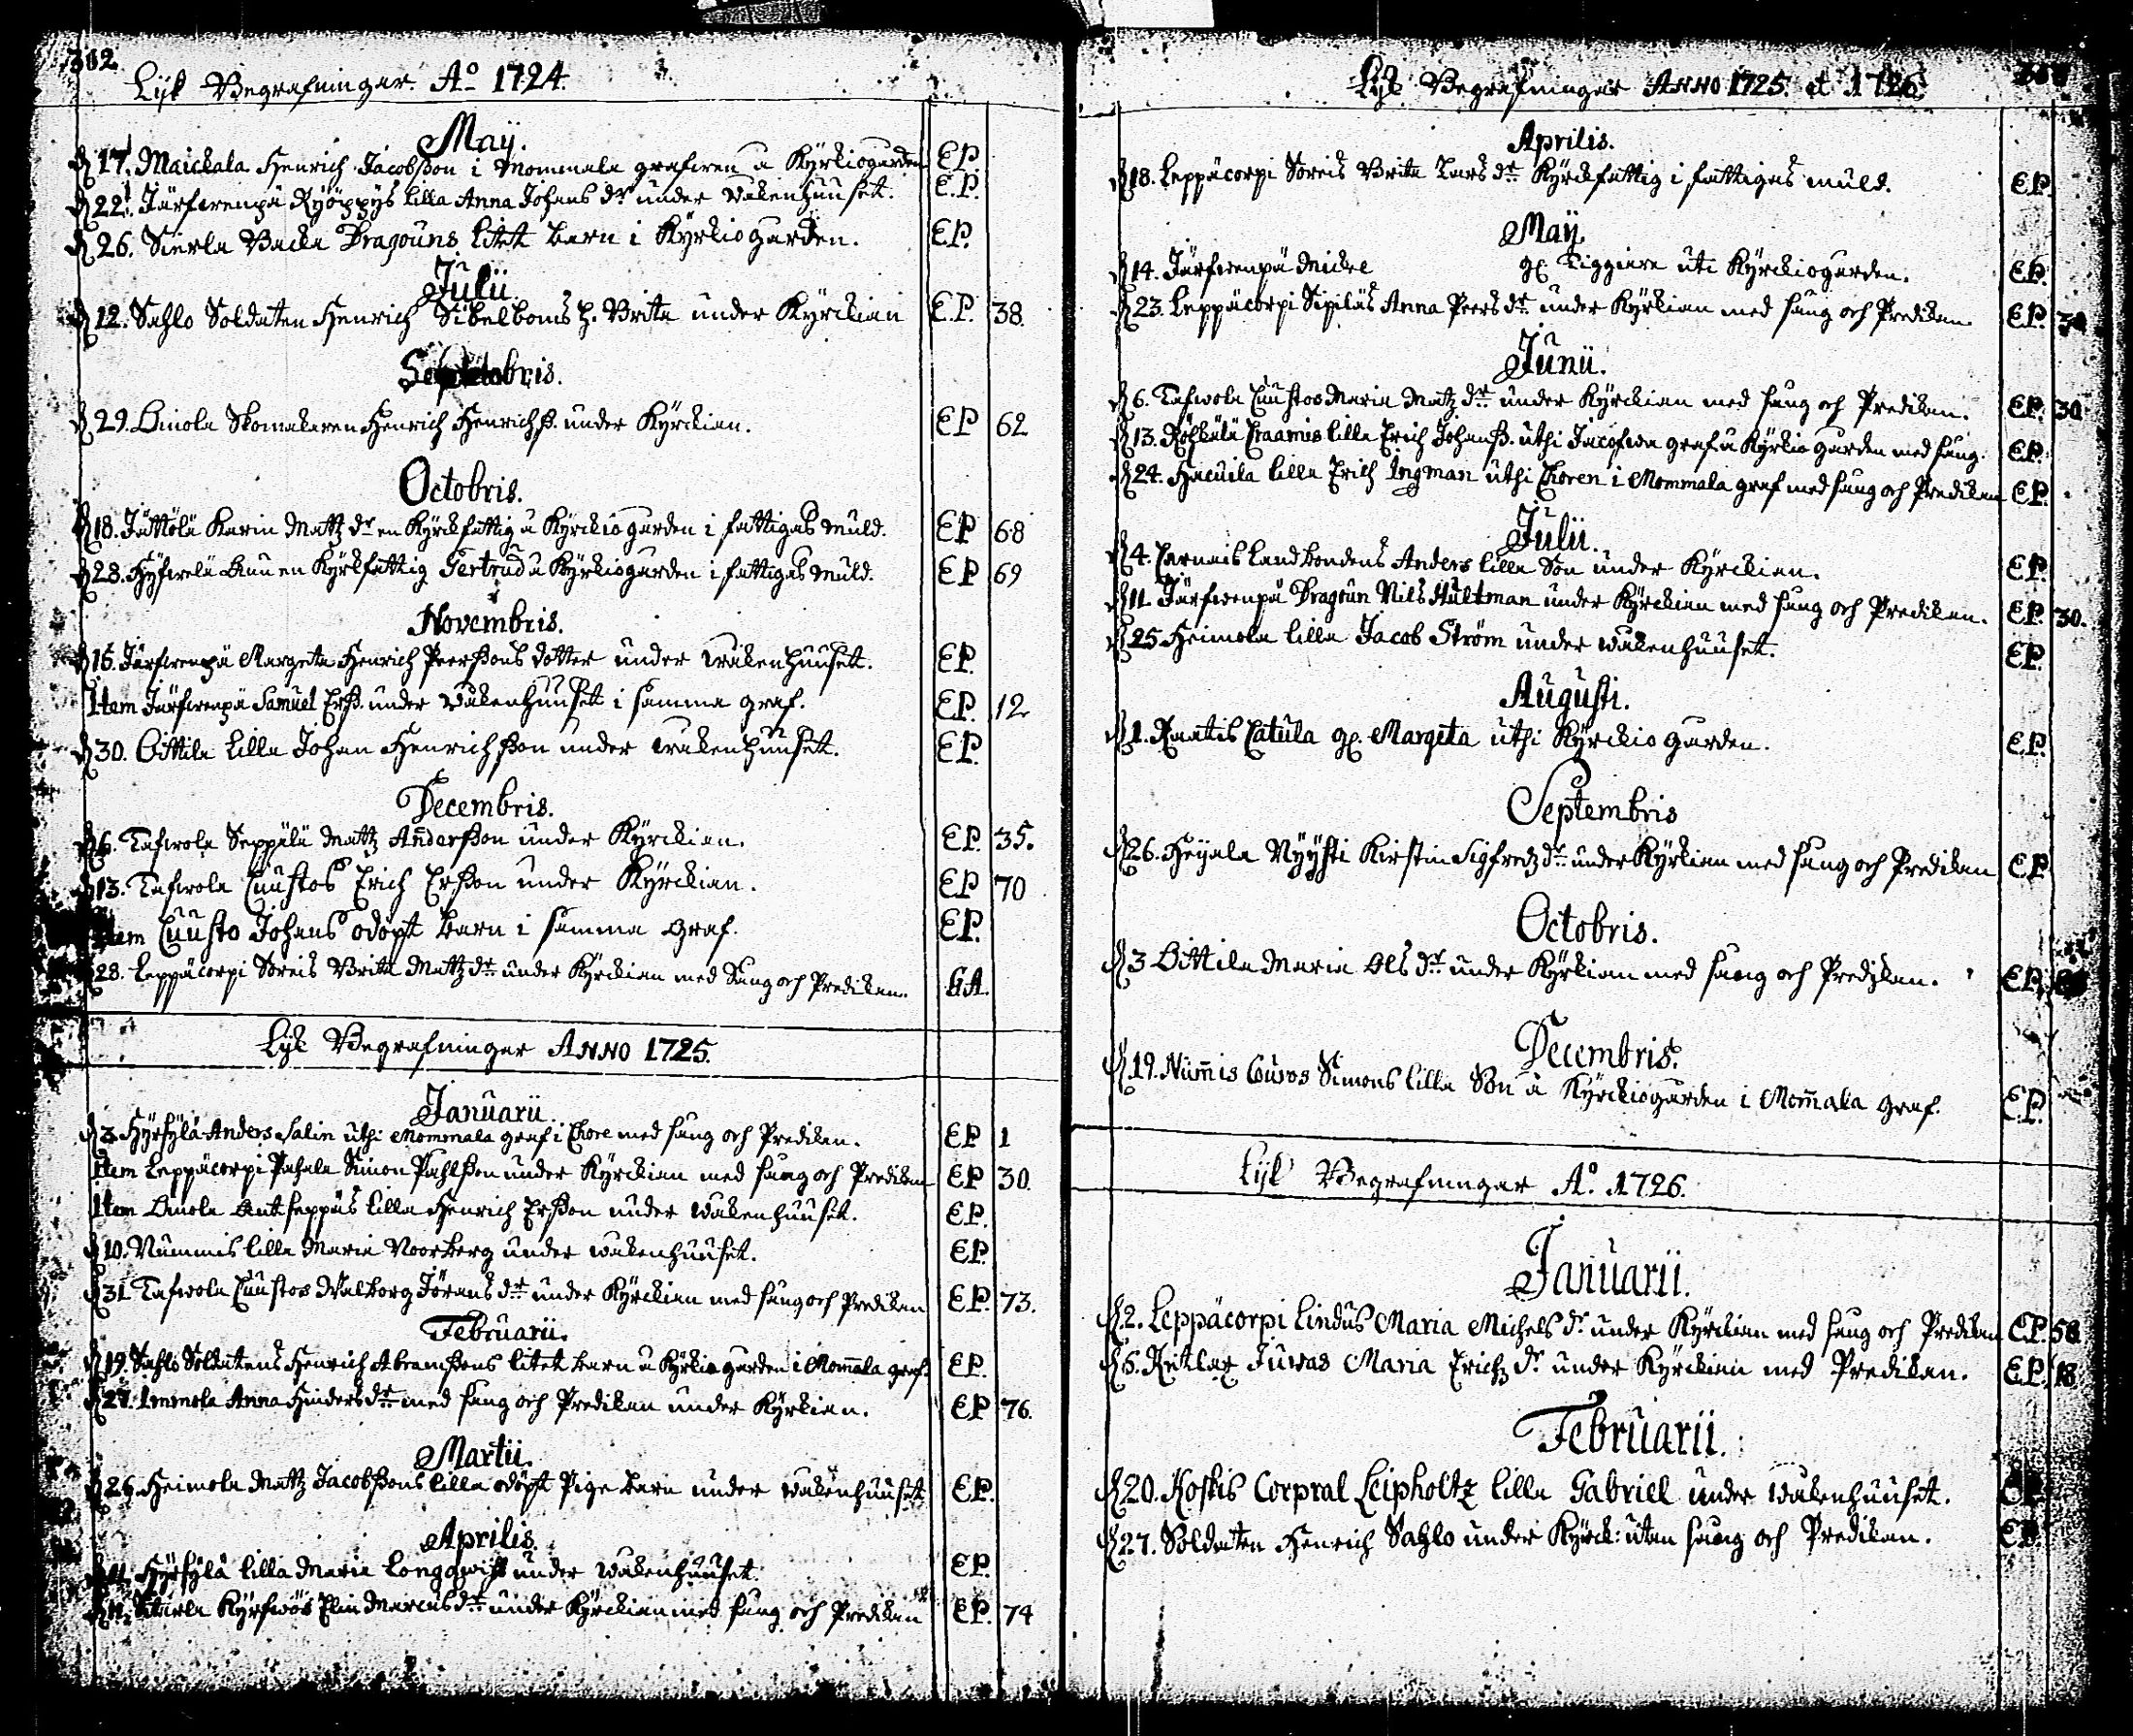 302
Lijk Begrafningar. Aº 1724.
Maij.
d 17. Maickala Henrich Jacobsson i Mommala grafwen å Kyrkiogården E.P.
d 22. Järfwenpä Ryöppys lilla Anna Johans dr under Wåkenhuuset. E.P.
d 26. Sierla Backa Dragouns litet barn i Kyrkiogården. E.P.
Julii
d 12. Sahlo Soldaten Henrich Sibelboms h. Brita under Kyrckian E.P. 38.
bris.
d 29. Oinola Skomakaren Henrich Henrichss. under Kyrckian. EP 62
Octobris.
d 18. Jättölä Karin Mattz dr en Kyrckfattig å Kyrckiogården i fattigas Muld. EP 68
d 28. Hyfwelä en Kyrkfattig Gertrud å Kyrkiogården i fattigas Muld. EP 69
Novembris.
d 15. Järfwenpä Margeta Henrich Peerssons dotter under wåkenhuuset. EP.
Item Järfwenpä Samuel Erss. under Wåkenhuuset i samma graf. EP. 12
d 30. Oittila lilla Johan Henrichsson under wåkenhuuset. EP.
Decembris.
d 6. Tafwola Seppälä Mattz Andersson under Kyrckian. EP. 35.
d 13. Tafwola Cuustos Erich Ersson under Kyrckian. EP 70
Item Cuusto Johans odöpt barn i samma graf. EP.
28. Leppäcorpi Soreis Brita Mattz dr under Kyrckian med Sång och Predikan. GA.
Lijk Begrafningar ANNO 1725.
Januarii
d 3. Hyrsylä Anders Salin uthi Mommala graf i Chore med sång och Predikan. EP 1
Item Leppäcorpi Pahala Simon Påhlsson under Kyrckian med sång och Predikan EP 30.
Item Oinola Anttseppäs lilla Henrich Ersson under wåkenhuuset. EP.
d 10. Nummis lilla Maria Noorberg under wåkenhuuset. EP.
d 31. Tafwola Cuustos Walborg Jörans dr under Kyrckian med sång och Predikan EP. 73.
Februarii.
d 19. Sahlo Soldatens Henrich Abramssons litet barn å Kyrkiogården i Mommala graf. EP.
d 27. Immola Anna Hinders dr med sång och Predikan under Kyrkian. EP 76.
Martii.
d 26. Heimola Mattz Jacobssons lilla odöpt Pige barn under wåkenhuuset EP.
Aprilis.
Hyrsylä lilla Maria under Wåkenhuuset. EP.
Kyrfwös Elin Marcus dr under Kyrckian med sång och Predikan EP. 74
Lijk Begrafningar ANNO 1725. et 1726.
Aprilis.
d 18. Leppäcorpi Soreis Brita Lars dr Kyrckfattig i fattigas muld. EP.
Maij.
d 14. Järfwenpä Mickel gl. Tiggiare uti Kyrckiogården. EP.
d 23. Leppäcorpi Sipiläs Anna Peers dr under Kyrkian med sång och Predikan. EP.
Junii.
d 6. Tafwola Cuustos Maria Matz dr under Kyrckian med sång och Predikan. EP. 30.
d 13. Röhkälä Craamis lilla Erich Johanss. uthi graf å Kyrkiogården med sång. EP.
d 24. Hacuila lilla Erich Ingman uthi Choren i Mommala graf med sång och Predikan EP.
Julii.
d 4. Carnais Landbondens Anders lilla Son under Kyrckian. EP.
d 11. Järfwenpä Dragoun Nils Hultman under Kyrckian med sång och Predikan. EP. 30.
d 25. Heimola lilla Jacob Ström under wåkenhuuset. EP.
Augusti.
d 1. Raatis Catula gl. Margeta uthi Kyrckiogården. EP.
Septembris
d 26. Heijala Nyysti Kirstin Sigfredz dr under Kyrkian med sång och Predikan EP.
Octobris.
d 3 Oittila Maria Ols dr under Kyrkian med sång och Predikan. EP.
Decembris.
d 19. Nummis Couvos Simons lilla Son å Kyrckiogården i Mommala graf. E.P.
Lijk Begrafningar Aº. 1726.
Januarii.
d 2. Leppäcorpi Lindus Maria Michels dr. under Kyrckian med sång och Predikan E.P. 58
d 6. Rutlax Juvas Maria Erichz dr under Kyrckian med Predikan. E.P. 18
Februarii.
d 20. Koskis Corpral Leipholtz lilla Gabriel under Wåkenhuuset.
d 27. Soldaten Henrich Sahlo under Kyrck: utan sång och Predikan. E.P.